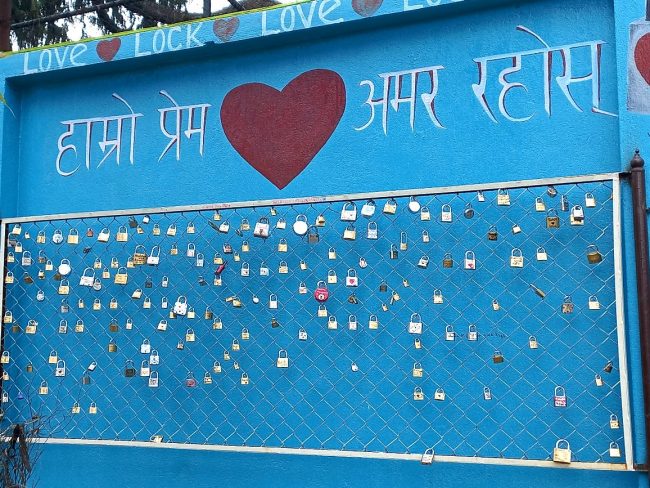 LOVE LOCK LOVE
हाम्रो प्रेम अमर रहोस्